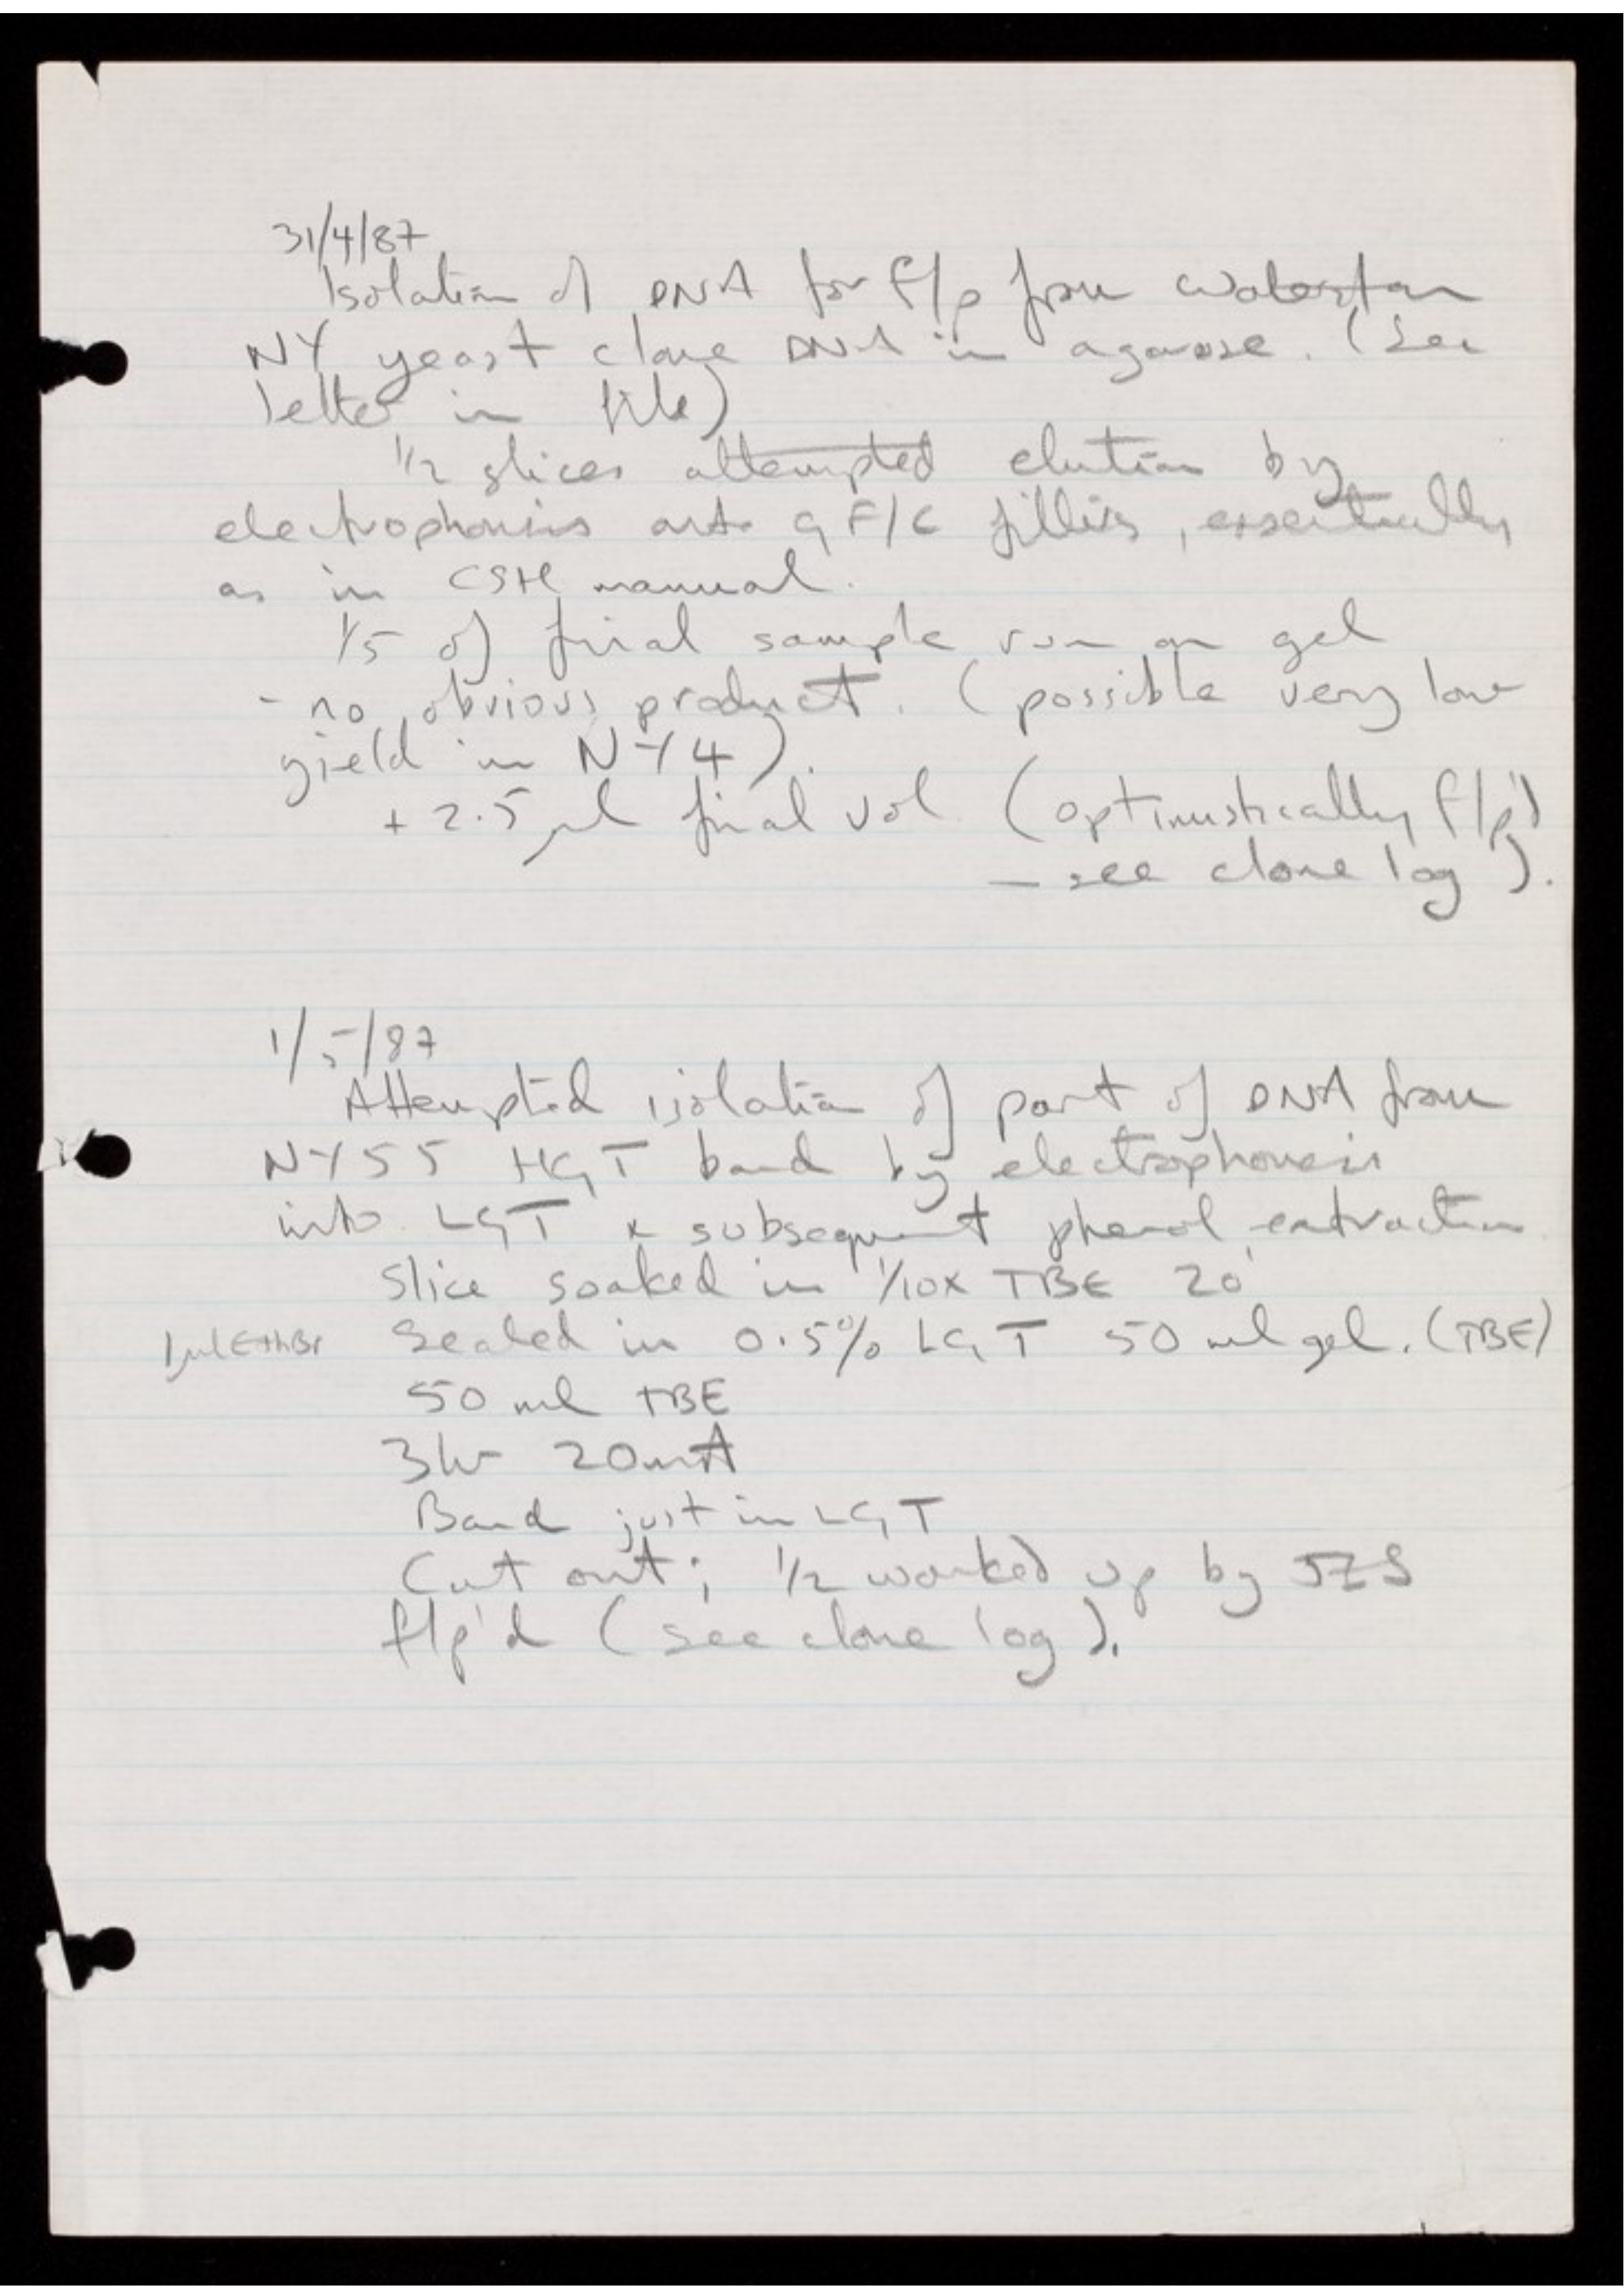 31/4/87
Isolation of DNA for f/p from Waterston
NY yeast clone DNA in agarose. (See
letter in file)
1/2 slices attempted elution by
electrophoresis onto GF/C , essentially
as in CSH manual.
1/5 of final sample run on gel
- no obvious product. (possible very low
yield in NY4).
+ 2.5 μl final vol (optimistically f/p'd
- see clone log).
1/5/87
Attempted isolation of part of DNA from
NY55 HGT band by electrophoresis
into LGT & subsequent phenol extraction
Slice soaked in 1/10x TBE 20'
1μl EthBr Sealed in 0.5% LGT 50 ml gel. (TBE)
50 ml TBE
3hr 20mA
Band just in LGT
Cut out; 1/2 worked up by JES
f/p'd (see clone log).